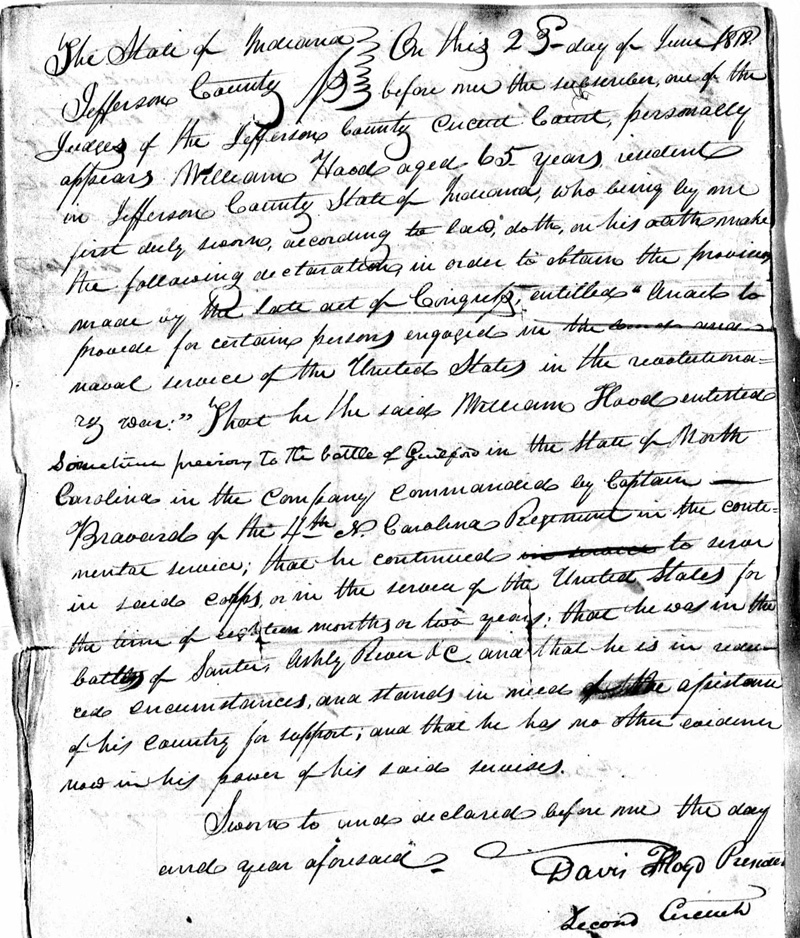 The State of Indiana } On this 23d day of June 1818.
Jefferson County } ss before me the subscriber, one of the
Judges of the Jefferson County Circuit Court, personally
appears William Hood aged 65 years, resident
in Jefferson County State of Indiana, who being by me
first duly sworn, according to law, doth, on his oath make
the following declaration, in order to obtain the provision
made by the late act of Congress, entitled "An act to
provide for certain persons engaged in the land and
naval service of the United States in the revolutiona=
ry war:" That he the said William Hood enlisted
Sometime previous to the battle of Guilford in the State of North
Carolina in the company commanded by Captain —
Bravard of the 4th N. Carolina Regiment in the conti=
nental service; that he continued in service to serve
in said corps, or in the service of the United States for
the term of eighteen months or two years; that he was in the
battles of Santee, Ashly River &C. and that he is in redu=
ced circumstances, and stands in need of the assistance
of his country for support; and that he has no other evidence
now in his power of his said services.
Sworn to and declared before me the day
and year aforesaid
Davis Floyd President
Second Circuit